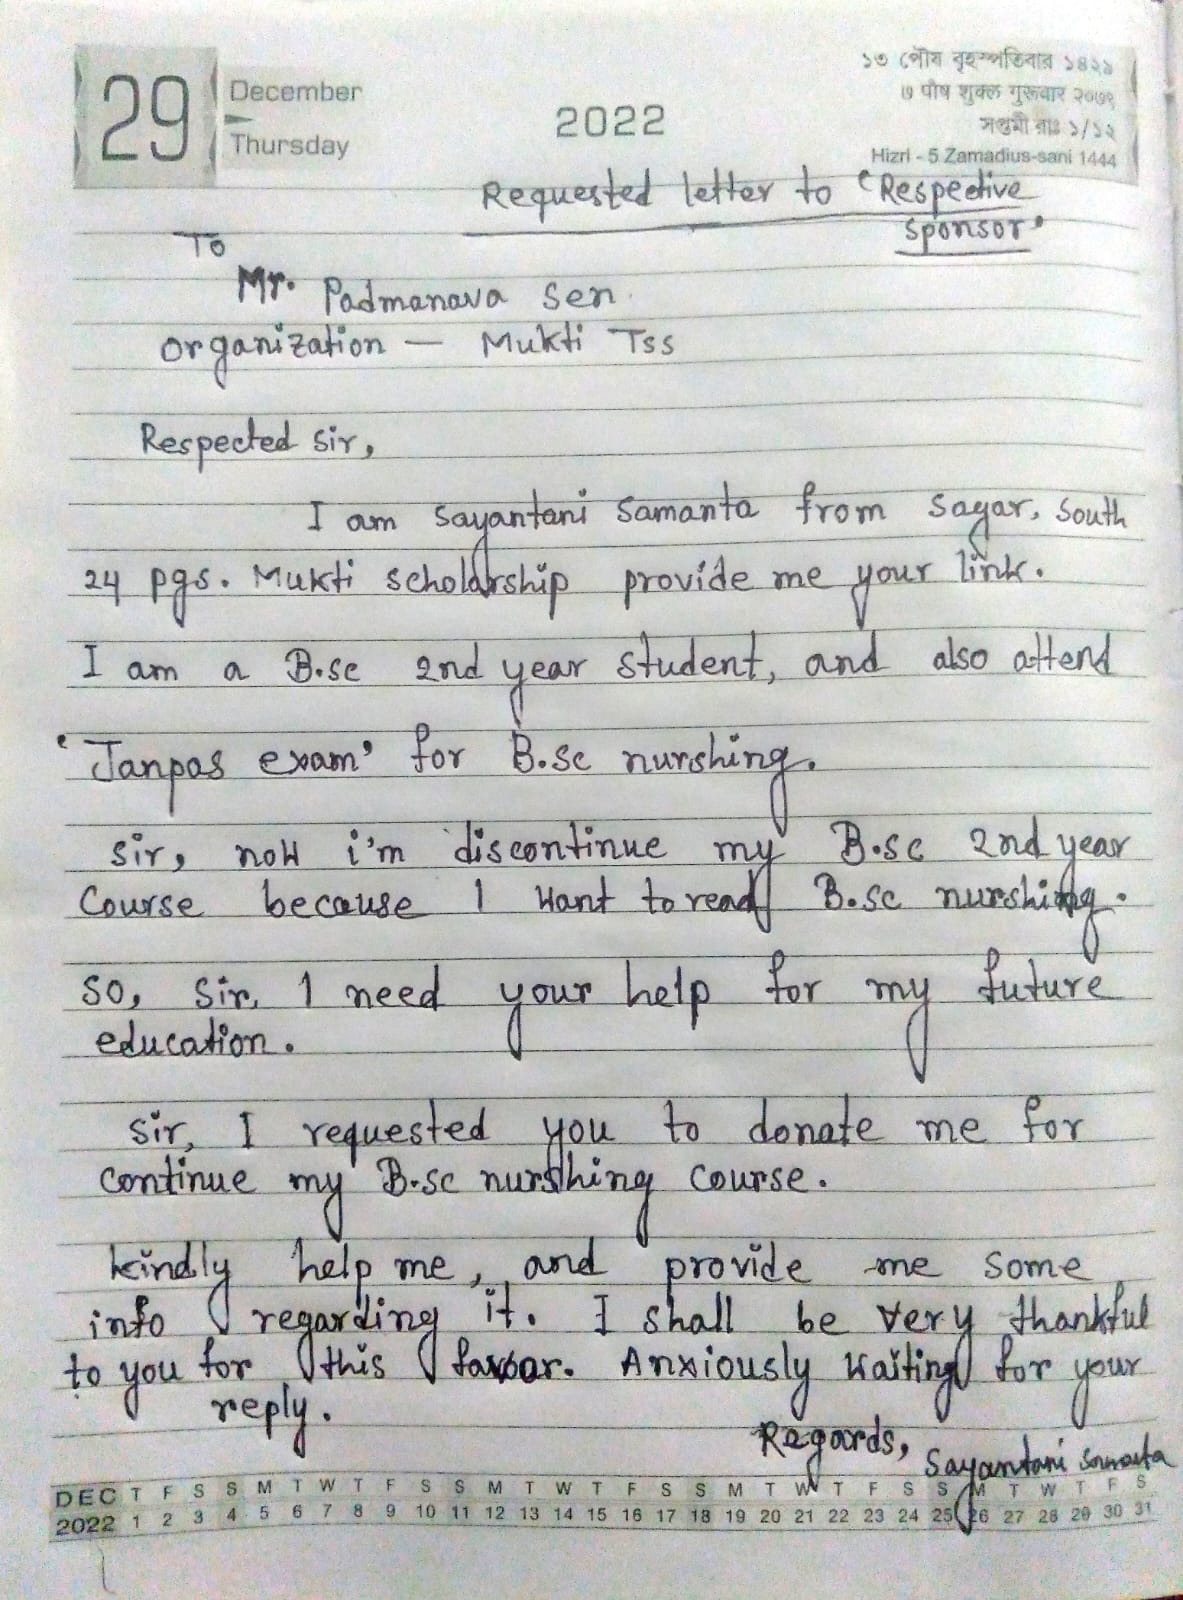 29
December
Thursday
2022
১৩ পৌষ বৃহস্পতিবার ১৪২৯
७ पौष शुक्ल गुरूवार २०७९
সপ্তমী রাঃ ১/১২
Hizri - 5 Zamadius-sani 1444
Requested letter to 'Respective
Sponsor'
To
Mr. Padmanava Sen
Organization — Mukti Tss
Respected Sir,
I am Sayantani Samanta from Sagar, South
24 pgs. Mukti scholarship provide me your link.
I am a B.sc 2nd year student, and also attend
'Janpas exam' for B.sc nurshing.
Sir, now i'm discontinue my B.sc 2nd year
Course because I want to read B.sc nurshing.
So, Sir, I need your help for my future
education.
Sir, I requested you to donate me for
continue my B.sc nurshing course.
kindly help me, and provide me some
info regarding it. I shall be very thankful
to you for this favour. Anxiously waiting for your
reply.
Regards,
Sayantani Samanta
DEC T F S S M T W T F S S M T W T F S S M T W T F S S M T W T F S
2022 1 2 3 4 5 6 7 8 9 10 11 12 13 14 15 16 17 18 19 20 21 22 23 24 25 26 27 28 29 30 31